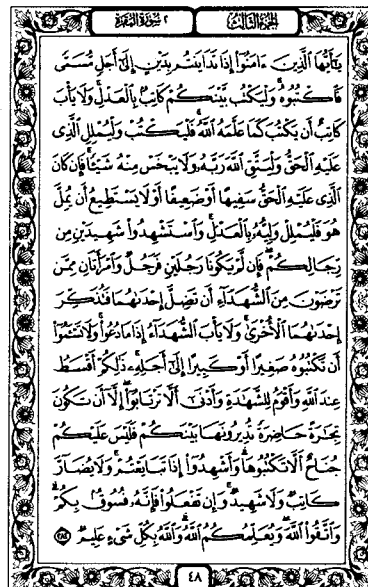 الجزء الثالث
٢ سورة البقرة
يَٰٓأَيُّهَا ٱلَّذِينَ ءَامَنُوٓا۟ إِذَا تَدَايَنتُم بِدَيْنٍ إِلَىٰٓ أَجَلٍ مُّسَمًّى
فَٱكْتُبُوهُ ۚ وَلْيَكْتُب بَّيْنَكُمْ كَاتِبٌۢ بِٱلْعَدْلِ ۚ وَلَا يَأْبَ
كَاتِبٌ أَن يَكْتُبَ كَمَا عَلَّمَهُ ٱللَّهُ ۚ فَلْيَكْتُبْ وَلْيُمْلِلِ ٱلَّذِى
عَلَيْهِ ٱلْحَقُّ وَلْيَتَّقِ ٱللَّهَ رَبَّهُۥ وَلَا يَبْخَسْ مِنْهُ شَيْـًٔا ۚ فَإِن كَانَ
ٱلَّذِى عَلَيْهِ ٱلْحَقُّ سَفِيهًا أَوْ ضَعِيفًا أَوْ لَا يَسْتَطِيعُ أَن يُمِلَّ
هُوَ فَلْيُمْلِلْ وَلِيُّهُۥ بِٱلْعَدْلِ ۚ وَٱسْتَشْهِدُوا۟ شَهِيدَيْنِ مِن
رِّجَالِكُمْ ۖ فَإِن لَّمْ يَكُونَا رَجُلَيْنِ فَرَجُلٌ وَٱمْرَأَتَانِ مِمَّن
تَرْضَوْنَ مِنَ ٱلشُّهَدَآءِ أَن تَضِلَّ إِحْدَىٰهُمَا فَتُذَكِّرَ
إِحْدَىٰهُمَا ٱلْأُخْرَىٰ ۚ وَلَا يَأْبَ ٱلشُّهَدَآءُ إِذَا مَا دُعُوا۟ ۚ وَلَا تَسْـَٔمُوٓا۟
أَن تَكْتُبُوهُ صَغِيرًا أَوْ كَبِيرًا إِلَىٰٓ أَجَلِهِۦ ۚ ذَٰلِكُمْ أَقْسَطُ
عِندَ ٱللَّهِ وَأَقْوَمُ لِلشَّهَٰدَةِ وَأَدْنَىٰٓ أَلَّا تَرْتَابُوٓا۟ ۖ إِلَّآ أَن تَكُونَ
تِجَٰرَةً حَاضِرَةً تُدِيرُونَهَا بَيْنَكُمْ فَلَيْسَ عَلَيْكُمْ
جُنَاحٌ أَلَّا تَكْتُبُوهَا ۗ وَأَشْهِدُوٓا۟ إِذَا تَبَايَعْتُمْ ۚ وَلَا يُضَآرَّ
كَاتِبٌ وَلَا شَهِيدٌ ۚ وَإِن تَفْعَلُوا۟ فَإِنَّهُۥ فُسُوقٌۢ بِكُمْ ۗ
وَٱتَّقُوا۟ ٱللَّهَ ۖ وَيُعَلِّمُكُمُ ٱللَّهُ ۗ وَٱللَّهُ بِكُلِّ شَىْءٍ عَلِيمٌ ٢٨٢
٤٨